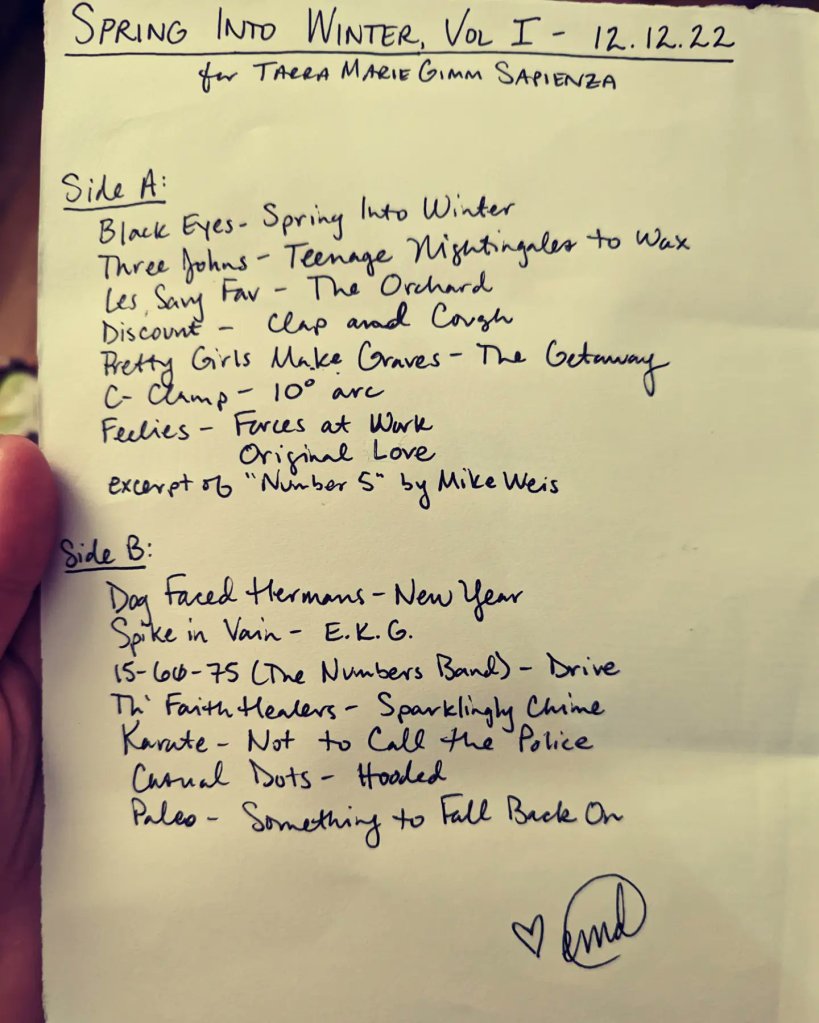 SPRING INTO WINTER, VOL I - 12.12.22
for TARRA MARIE GIMM SAPIENZA
Side A:
Black Eyes - Spring Into Winter
Three Johns - Teenage Nightingales to Wax
Les Savy Fav - The Orchard
Discount - Clap and Cough
Pretty Girls Make Graves - The Getaway
C-Clamp - 10° arc
Feelies - Forces at Work
Original Love
excerpt of "Number 5" by Mike Weis
Side B:
Dog Faced Hermans - New Year
Spike in Vain - E.K.G.
15-60-75 (The Numbers Band) - Drive
Th' Faith Healers - Sparklingly Chime
Karate - Not to Call the Police
Casual Dots - Hooded
Paleo - Something to Fall Back On
♡ emd